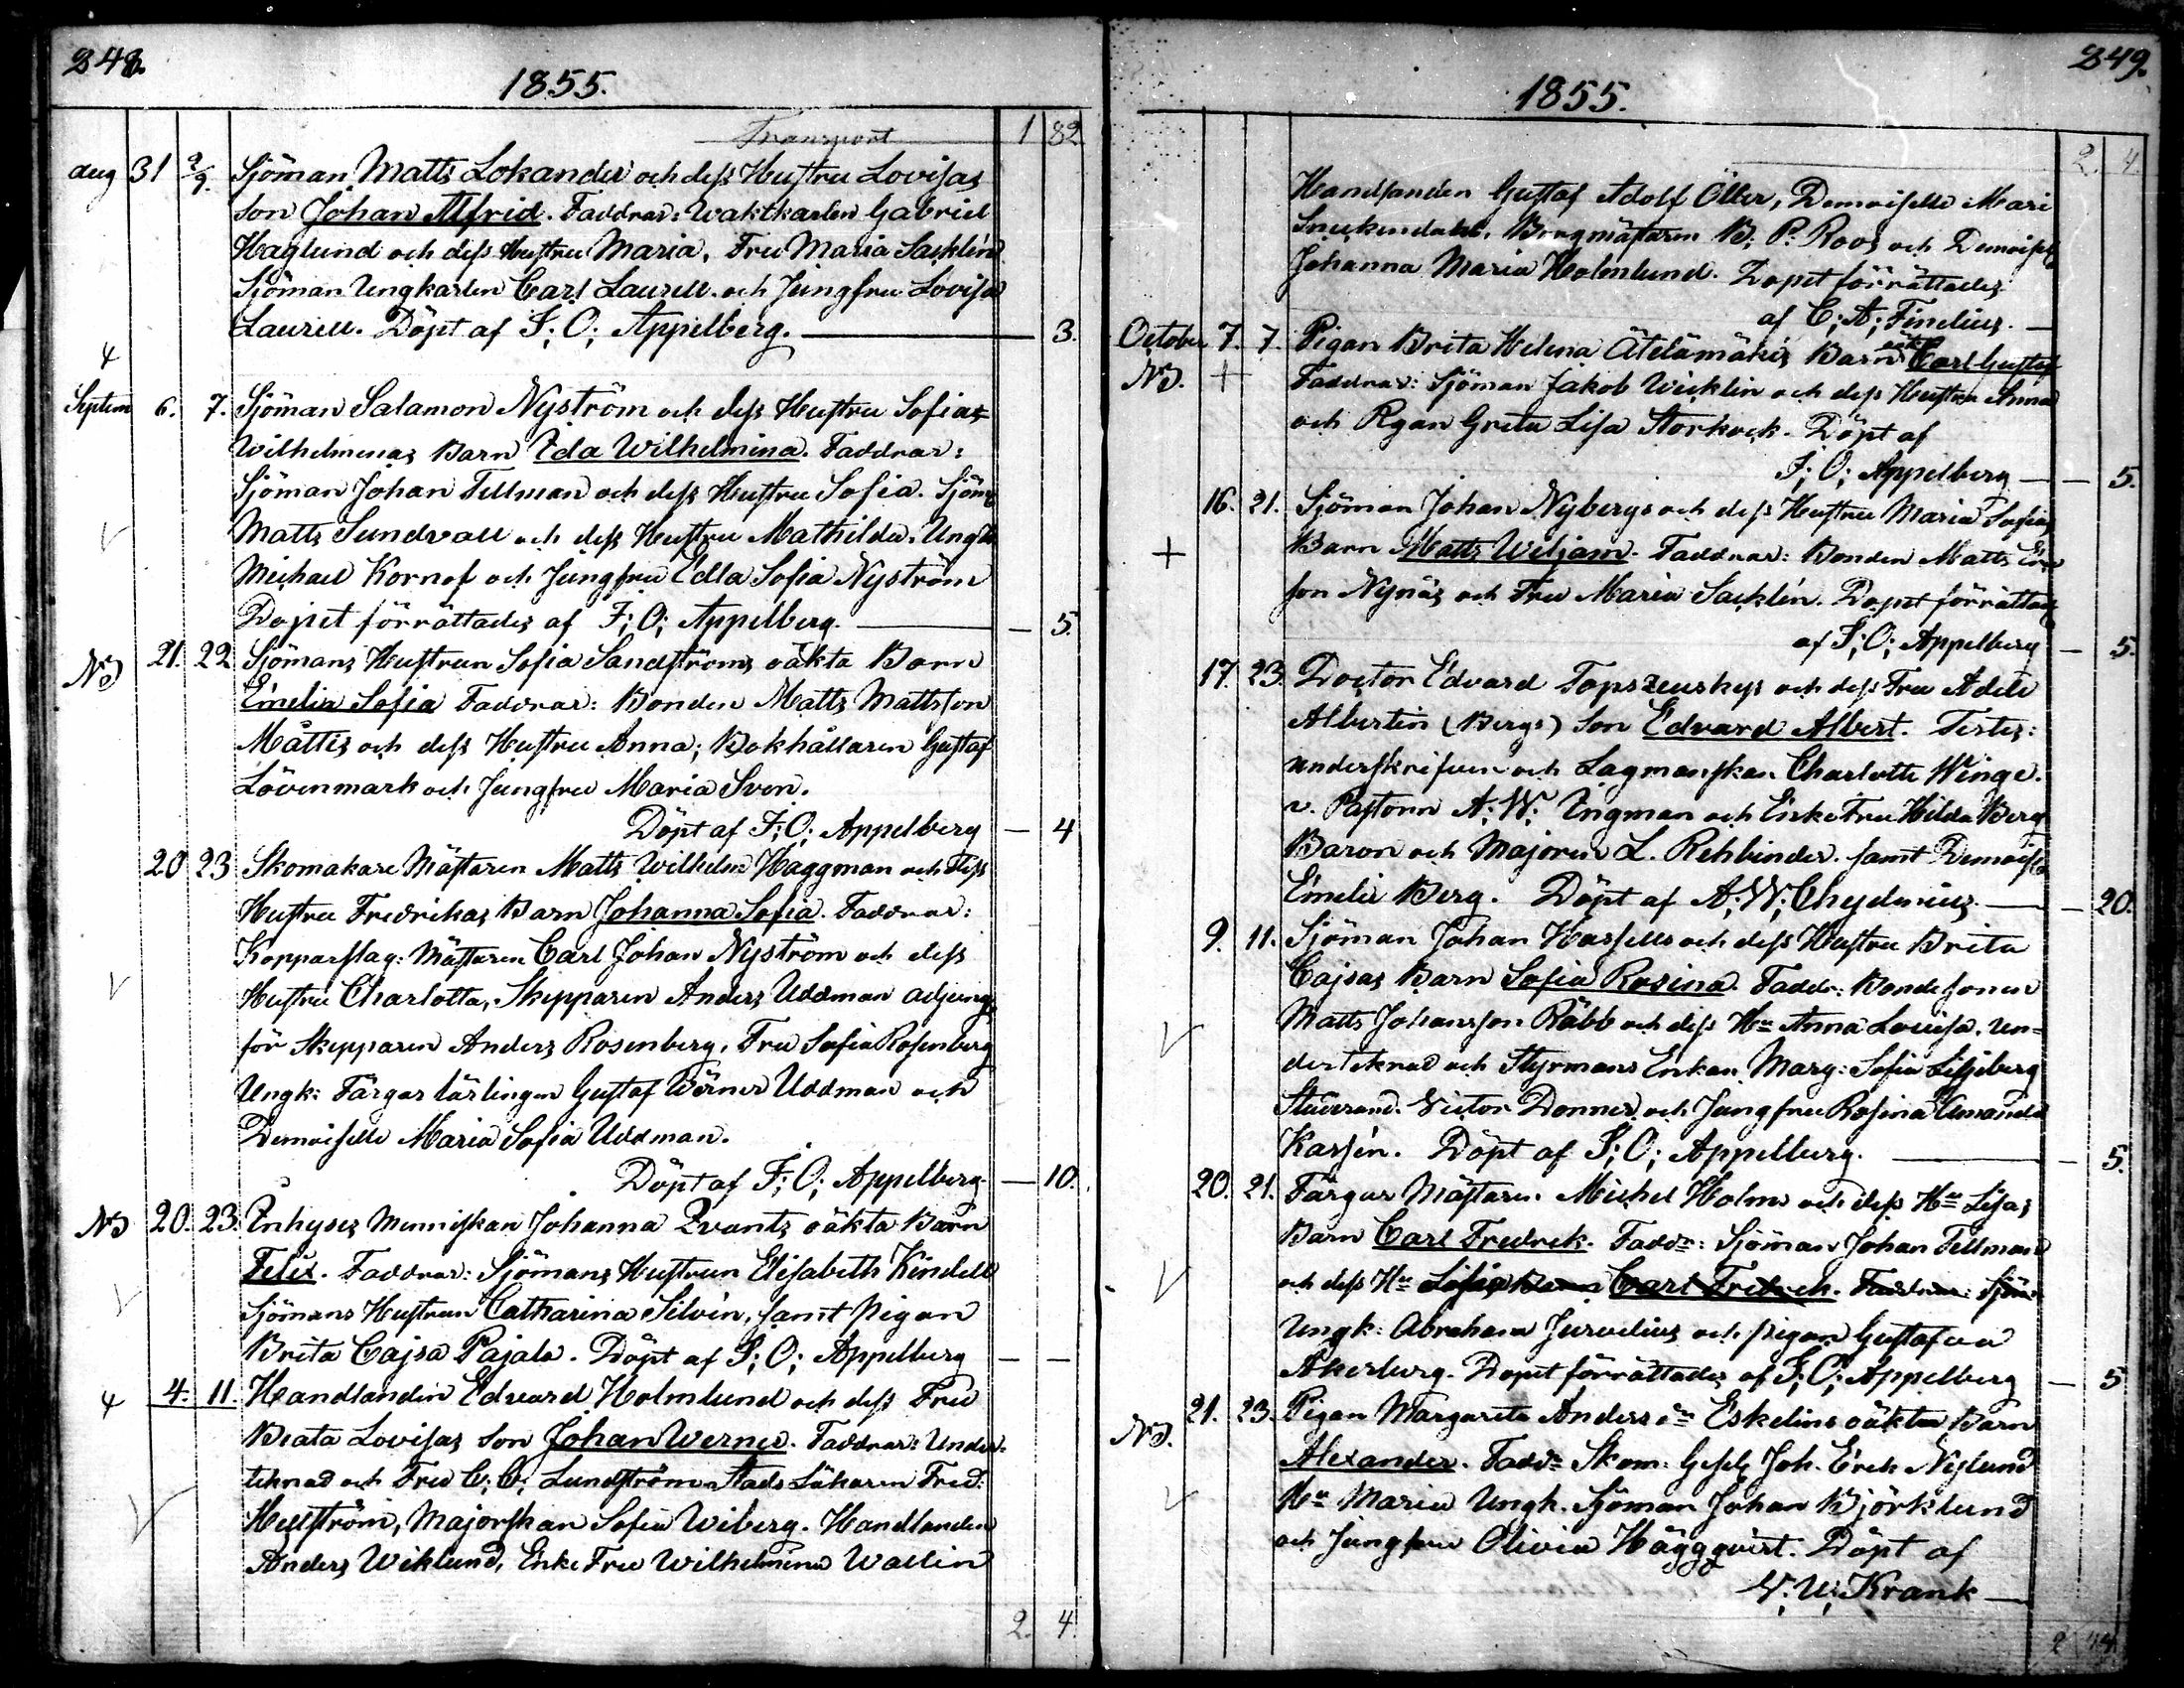 248.
1855.
Transport 1 82
aug 31 2/9. Sjöman Matts Lokander och dess Hustru Lovisas
son Johan Alfrid. Faddrar: Waktkarlen Gabriel
Haglund och dess Hustru Maria, Fru Maria Sacklén
Sjöman Ungkarlen Carl Laurell och Jungfru Lovisa
Laurell. Döpt af F; O; Appelberg. 3.
Septem 6. 7. Sjöman Salamon Nyström och dess Hustru Sofias
Wilhelminas Barn Ida Wilhelmina. Faddrar:
Sjöman Johan Tellman och dess Hustru Sofia. Sjöm
Matts Sundvall och dess Hustru Mathilda. Ungk
Michael Kornof och Jungfru Edla Sofia Nyström
Dopet förrättades af F; O; Appelberg. — 5.
No 21. 22 Sjömans Hustrun Sofia Sandströms oäkta Barn
Emelia Sofia Faddrar: Bonden Matts Mattsson
Mattis och dess Hustru Anna; Bokhållaren Gustaf
Lövenmark och Jungfru Maria Sven.
Döpt af F; O; Appelberg — 4
20 23 Skomakare Mästaren Matts Wilhelm Häggman och dess
Hustru Fredrikas Barn Johanna Sofia. Faddrar:
Kopparslag: Mästaren Carl Johan Nyström och dess
Hustru Charlotta, Skepparen Anders Uddman adjung
för Skepparen Anders Rosenberg, Fru Sofia Rosenberg
Ungk: Färgar lärlingen Gustaf Werner Uddman och
Demoiselle Maria Sofia Uddman.
Döpt af F; O; Appelberg — 10.
No 20. 23. Inhyses Menniskan Johanna Qvants oäkta Barn
Felix. Faddrar: Sjömans Hustrun Elisabeth Kindell
Sjömans Hustrun Catharina Silvén, samt pigan
Brita Cajsa Pajala. Döpt af F; O; Appelberg — —
4. 11. Handlanden Edvard Holmlund och dess Fru
Beata Lovisas son Johan Werner. Faddrar: Under-
teknad och Fru C; C; Lundström Stads Läkaren Fred:
Hellström, Majorskan Sofia Wiberg. Handlanden
Anders Wiklund, Enke Fru Wilhelmina Wallin
2. 4.
249.
1855.
2. 4.
Handlanden Gustaf Adolf Öller, Demoiselle Mari
Sneckendahl, Borgmästaren B; P: Roos och Demoisell
Johanna Maria Holmlund. Dopet förrättades
af C; A; Finelius. —
October 7. 7. Pigan Brita Helena Ätelämäkis Barn Carl Gustaf
No. + Faddrar: Sjöman Jakob Wicklin och dess Hustru Anna
och Pigan Greta Lisa Storkock. Döpt af
F; O; Appelberg — 5.
16. 21. Sjöman Johan Nybergs och dess Hustru Maria Sofias
+ Barn Matts Wiljam. Faddrar: Bonden Matts
son Nynäs och Fru Maria Sacklén. Dopet förrättades
af F; O; Appelberg — 5.
17. 23. Doctor Edvard och dess Fru Adele
Albertin (Bergs) Son Edvard Albert. Testes:
underskrifven och Lagmanskan Charlotte Winge.
v. Pastorn A; W; Ingman och EnkeFru Hilda Berg
Baron och Majoren L. Rehbinder. samt Demoisel
Emelie Berg. Döpt af A; W; Chydenius. — 20.
9. 11. Sjöman Johan Hassells och dess Hustru Brita
Cajsas Barn Sofia Rosina. Faddr: Bondesonen
Matts Johansson Rabb och dess Hu Anna Lovisa. Un-
derteknad och Styrmans Enkan Marg: Sofia Liljeberg
Studerand. Victor Donner och Jungfru Rosina Amanda
Karsén. Döpt af F; O; Appelberg. — 5.
20. 21. Färgar Mästaren Michel Holms och dess Hu Lisas
Barn Carl Fredrek. Faddr: Sjöman Johan Tellman
och dess Hu Sofia Barn Carl Fredrek. Faddrar: Sjöm
Ungk: Abraham Jurvelius och pigan Gustafva
Åkerberg. Dopet förrättades af F; O; Appelberg — 5
No. 21. 23. Pigan Margareta Anders dr Eskelins oäkta Barn
Alexander. Faddr Skom: Gesel Joh. Erik Nylund
Hu Maria Ungk. Sjöman Johan Björklund
och Jungfru Olivia Häggqvist. Döpt af
V; U; Krank —
2 44